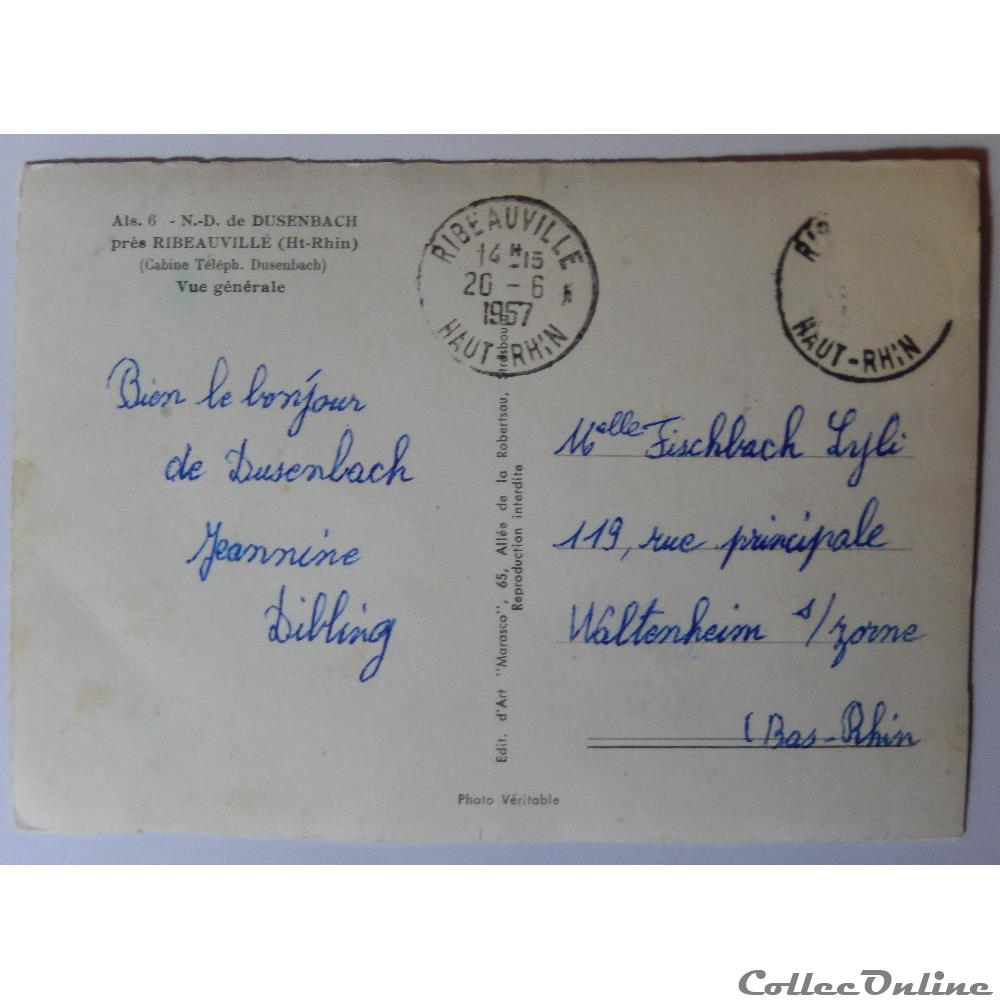 Als. 6 - N.-D. de DUSENBACH
près RIBEAUVILLÉ (Ht-Rhin)
(Cabine Téléph. Dusenbach)
Vue générale
RIBEAUVILLE
14 H 15
20 - 6
1957
HAUT-RHIN
RIB
HAUT-RHIN
Bien le bonjour
de Dusenbach
Jeannine
Dibling
Edit. d'Art "Marasco", 65, Allée de la Robertsau, Strasbourg
Reproduction interdite
Melle Fischbach Lyli
119, rue principale
Waltenheim s/zorne
(Bas-Rhin
Photo Véritable
CollecOnline